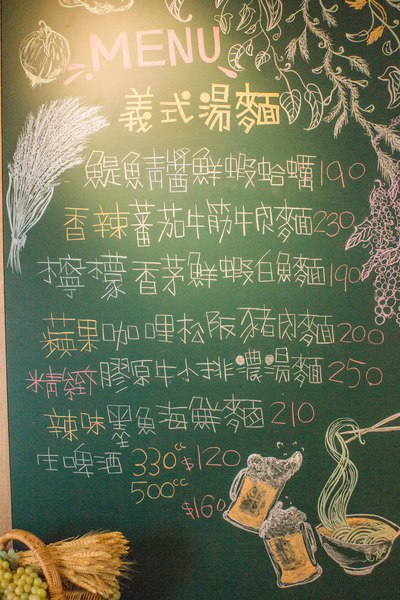 MENU
義式湯麵
鯷魚青醬鮮蝦蛤蠣190
香辣蕃茄牛筋牛肉麵230
檸檬香茅鮮蝦白魚麵190
蘋果咖哩松阪豬肉麵200
精緻膠原牛小排濃湯麵250
辣味墨魚海鮮麵210
生啤酒 330cc $120
500cc $160